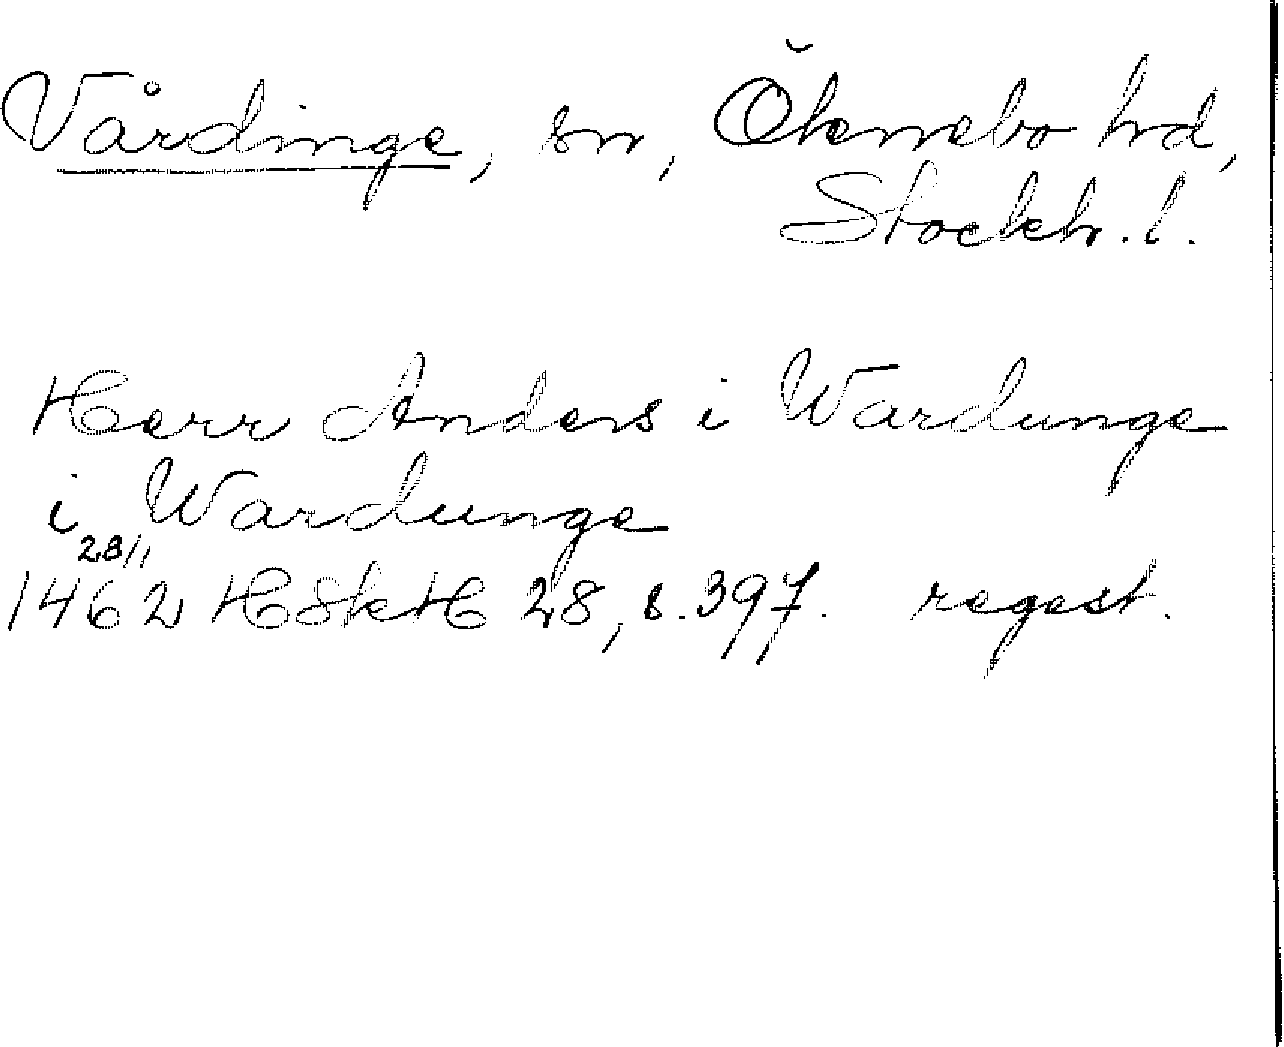 Vårdinge, sn, Öknebo hd,
Stockh. l.
Herr Anders i Wardunge
i Wardunge
28/1
1462 HSkH 28, s. 397. regest.